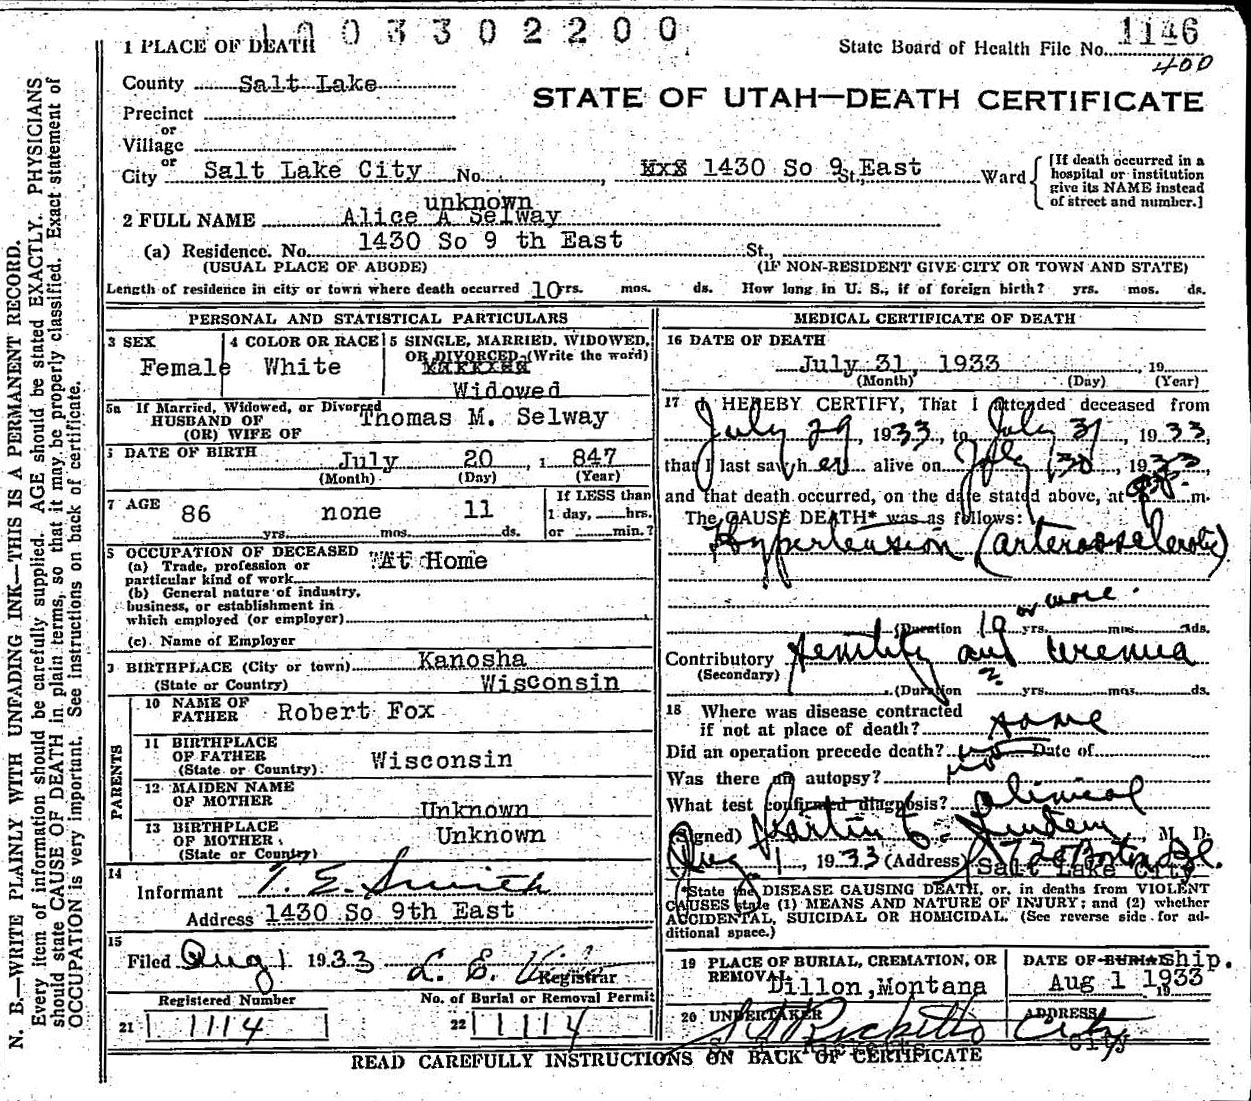 1003302200
1 PLACE OF DEATH
State Board of Health File No. 1146
400
County Salt Lake
STATE OF UTAH—DEATH CERTIFICATE
Precinct
or
Village
or
City Salt Lake City No. , 1430 So 9 St., East Ward
[If death occurred in a
hospital or institution
give its NAME instead
of street and number.]
unknown
2 FULL NAME Alice A Selway
(a) Residence. No. 1430 So 9 th East St.,
(USUAL PLACE OF ABODE) (IF NON-RESIDENT GIVE CITY OR TOWN AND STATE)
Length of residence in city or town where death occurred 10 yrs. mos. ds. How long in U. S., if of foreign birth? yrs. mos. ds.
PERSONAL AND STATISTICAL PARTICULARS
3 SEX
Female
4 COLOR OR RACE
White
5 SINGLE, MARRIED, WIDOWED,
OR DIVORCED (Write the word)
Widowed
5a If Married, Widowed, or Divorced
HUSBAND OF
(OR) WIFE OF
Thomas M. Selway
DATE OF BIRTH July 20, 1 847
(Month) (Day) (Year)
7 AGE 86 yrs. none mos. 11 ds.
If LESS than
1 day, hrs.
or min.?
OCCUPATION OF DECEASED
(a) Trade, profession or
particular kind of work At Home
(b) General nature of industry,
business, or establishment in
which employed (or employer)
(c) Name of Employer
BIRTHPLACE (City or town) Kanosha
(State or Country) Wisconsin
PARENTS
10 NAME OF
FATHER Robert Fox
11 BIRTHPLACE
OF FATHER
(State or Country) Wisconsin
12 MAIDEN NAME
OF MOTHER Unknown
13 BIRTHPLACE
OF MOTHER
(State or Country) Unknown
14
Informant T. E. Smith
Address 1430 So 9th East
15
Filed Aug 1 1933 L. E.
Registrar
Registered Number
21 1114
No. of Burial or Removal Permit
22 1114
MEDICAL CERTIFICATE OF DEATH
16 DATE OF DEATH
July 31, 1933, 19
(Month) (Day) (Year)
17 I HEREBY CERTIFY, That I attended deceased from
July 29, 1933, to July 31, 1933,
that I last saw her alive on July 30, 1933
and that death occurred, on the date stated above, at m.
The CAUSE DEATH* was as follows:
Hypertension (arterosclerotic)
or more.
(Duration 10 yrs. mos. ds.
Contributory Senility and Uremia
(Secondary)
(Duration ? yrs. mos. ds.
18 Where was disease contracted
if not at place of death? Home
Did an operation precede death? no Date of
Was there an autopsy? no
What test confirmed diagnosis? Clinical
(Signed) Martin C. Lindem, M. D.
Aug 1, 1933 (Address) 720 Boston Bl.
Salt Lake City
*State the DISEASE CAUSING DEATH, or, in deaths from VIOLENT
CAUSES state (1) MEANS AND NATURE OF INJURY; and (2) whether
ACCIDENTAL, SUICIDAL OR HOMICIDAL. (See reverse side for ad-
ditional space.)
19 PLACE OF BURIAL, CREMATION, OR
REMOVAL Dillon, Montana
DATE OF BURIAL ship.
Aug 1 1933
19
20 UNDERTAKER
Ricketts
ADDRESS
City
City
READ CAREFULLY INSTRUCTIONS ON BACK OF CERTIFICATE
N. B.—WRITE PLAINLY WITH UNFADING INK—THIS IS A PERMANENT RECORD.
Every item of information should be carefully supplied. AGE should be stated EXACTLY. PHYSICIANS
should state CAUSE OF DEATH in plain terms, so that it may be properly classified. Exact statement of
OCCUPATION is very important. See instructions on back of certificate.